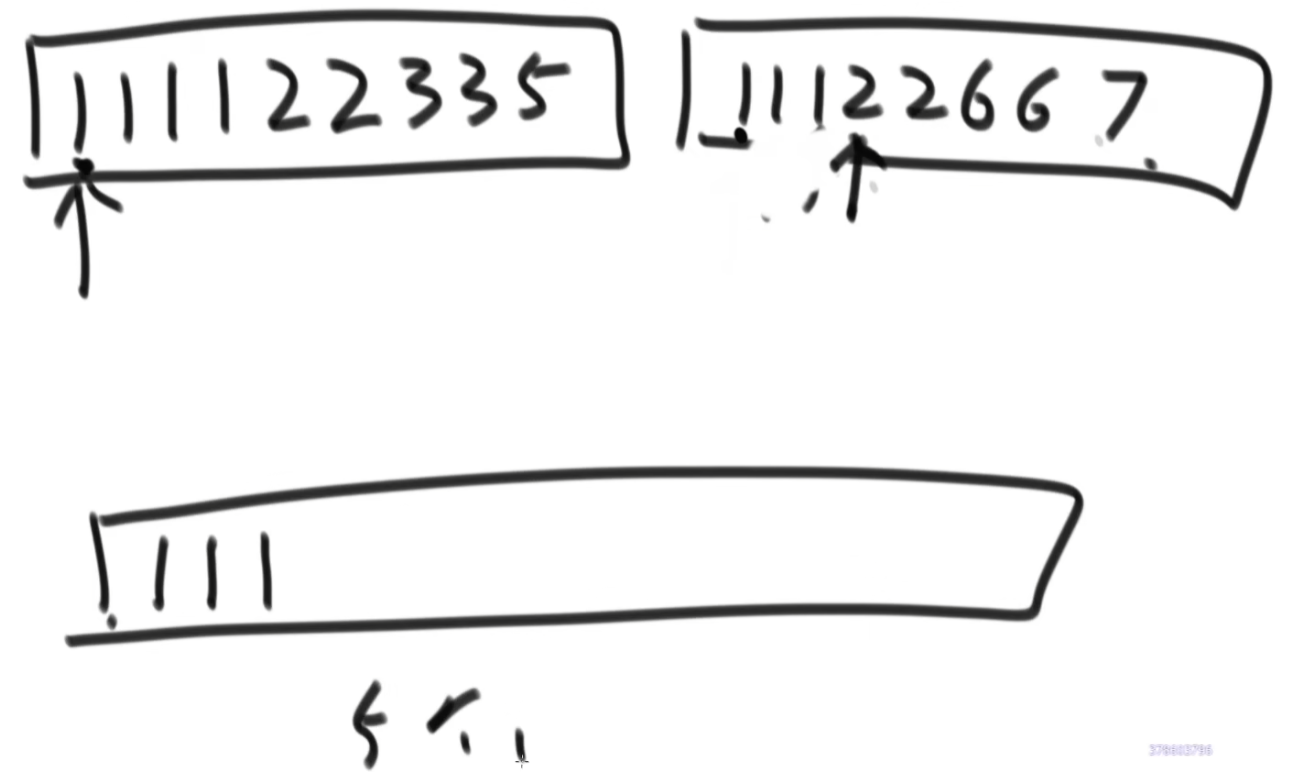 1 1 1 1 2 2 3 3 5
1 1 1 2 2 6 6 7
1 1 1
378603796